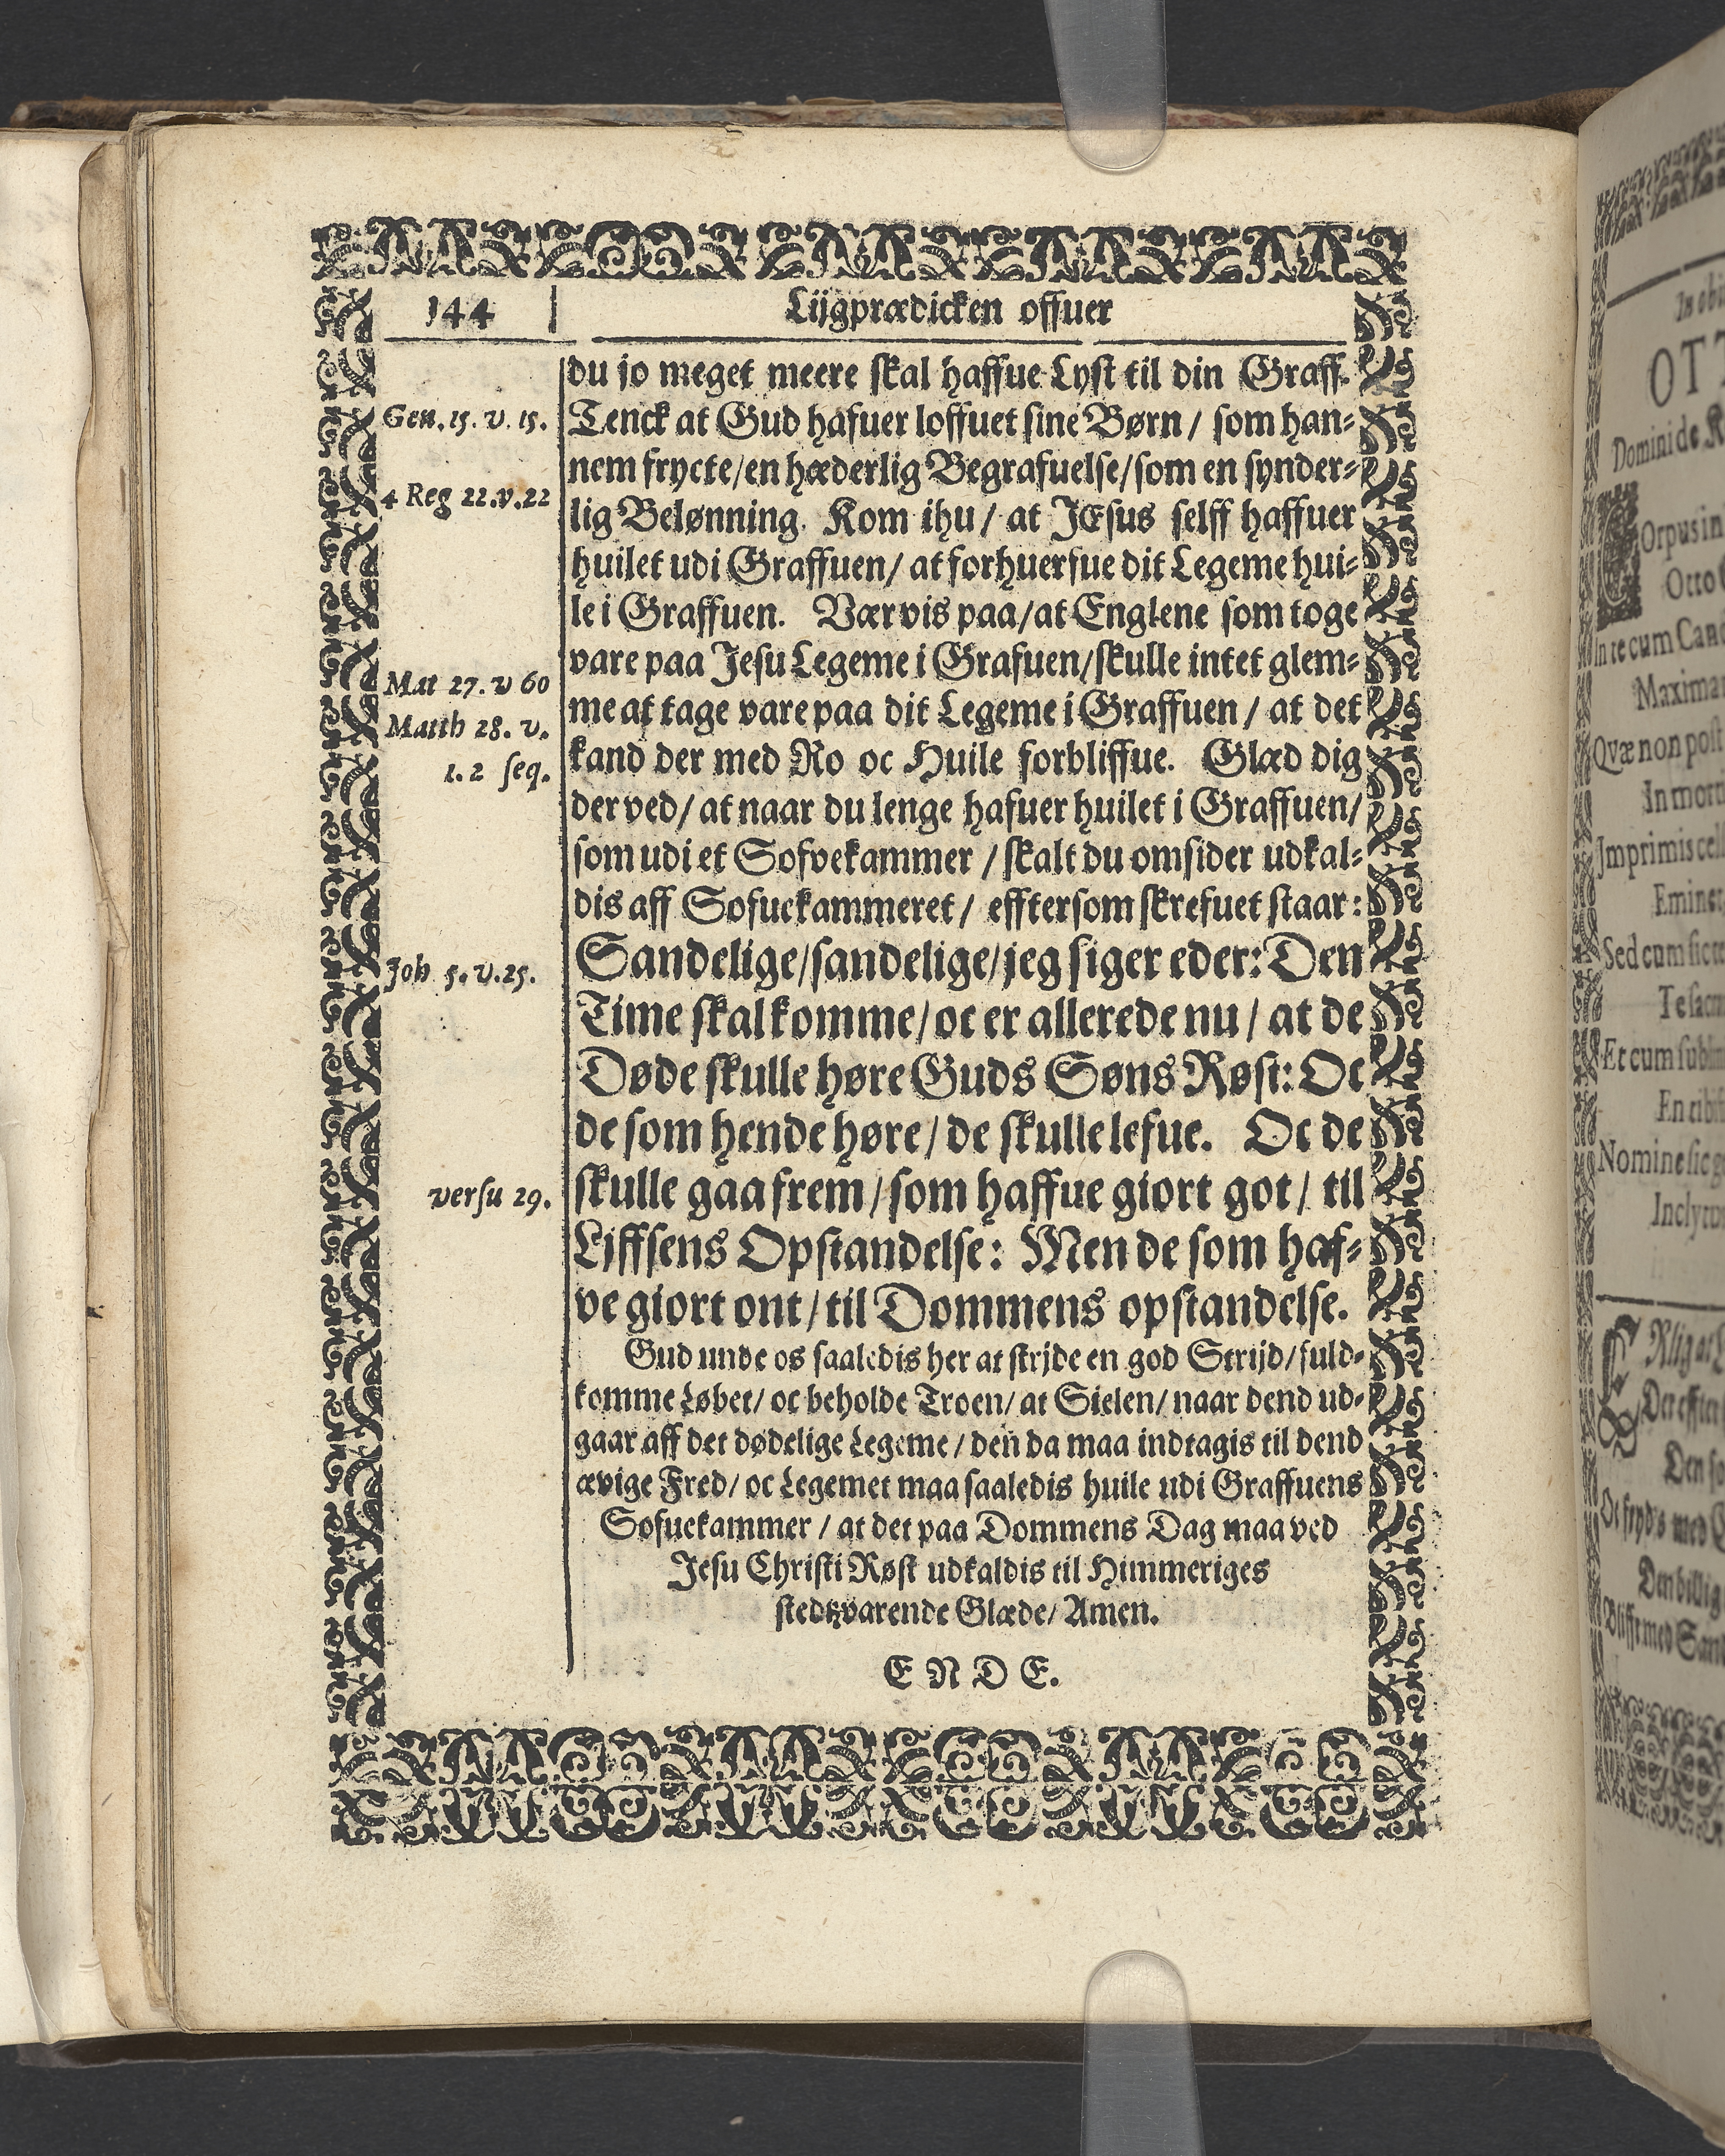 144
Lijgprædicken offuer
du jo meget meere skal haffue Lyst til din Graff.
Gen. 15. v. 15.
Tenck at Gud hafuer loffuet sine Børn / som han-
nem frycte/en hæderlig Begrafuelse/som en synder-
4 Reg 22.v.22
lig Belønning. Kom ihu / at JEsus selff haffuer
huilet udi Graffuen/ at forhuerfue dit Legeme hui-
le i Graffuen. Vær vis paa/at Englene som toge
vare paa Jesu Legeme i Grafuen/skulle intet glem-
Mat 27. v 60
me at tage vare paa dit Legeme i Graffuen / at det
Matth 28. v.
kand der med Ro oc Huile forbliffue. Glæd dig
1. 2 seq.
der ved/ at naar du lenge hafuer huilet i Graffuen/
som udi et Sofvekammer / skalt du omsider udkal-
dis aff Sofuekammeret / efftersom skrefuet staar:
Sandelige/sandelige/jeg siger eder: Den
Joh 5. v.25.
Time skal komme/oc er allerede nu / at de
Døde skulle høre Guds Søns Røst: Oc
de som hende høre/de skulle lefue. Oc de
versu 29.
skulle gaa frem/som haffue giort got/ til
Lifffens Opstandelse: Men de som haf-
ve giort ont/til Dommens opstandelse.
Gud unde os saaledis her at strjde en god Strijd/fuld-
komme Løbet/ oc beholde Troen/ at Sielen/ naar dend ud-
gaar aff det dødelige Legeme / den da maa indtagis til dend
ævige Fred/ oc Legemet maa saaledis huile udi Graffuens
Sofuekammer / at det paa Dommens Dag maa ved
Jesu Christi Røst udkaldis til Himmeriges
stedtzvarende Glæde/ Amen.
E N D E.
OT
Domini de
Orpus in
Otto
In re cum
Maxima
Qvæ non post
In mort
Imprimis
Sed cum
Et cum
Nomine sic